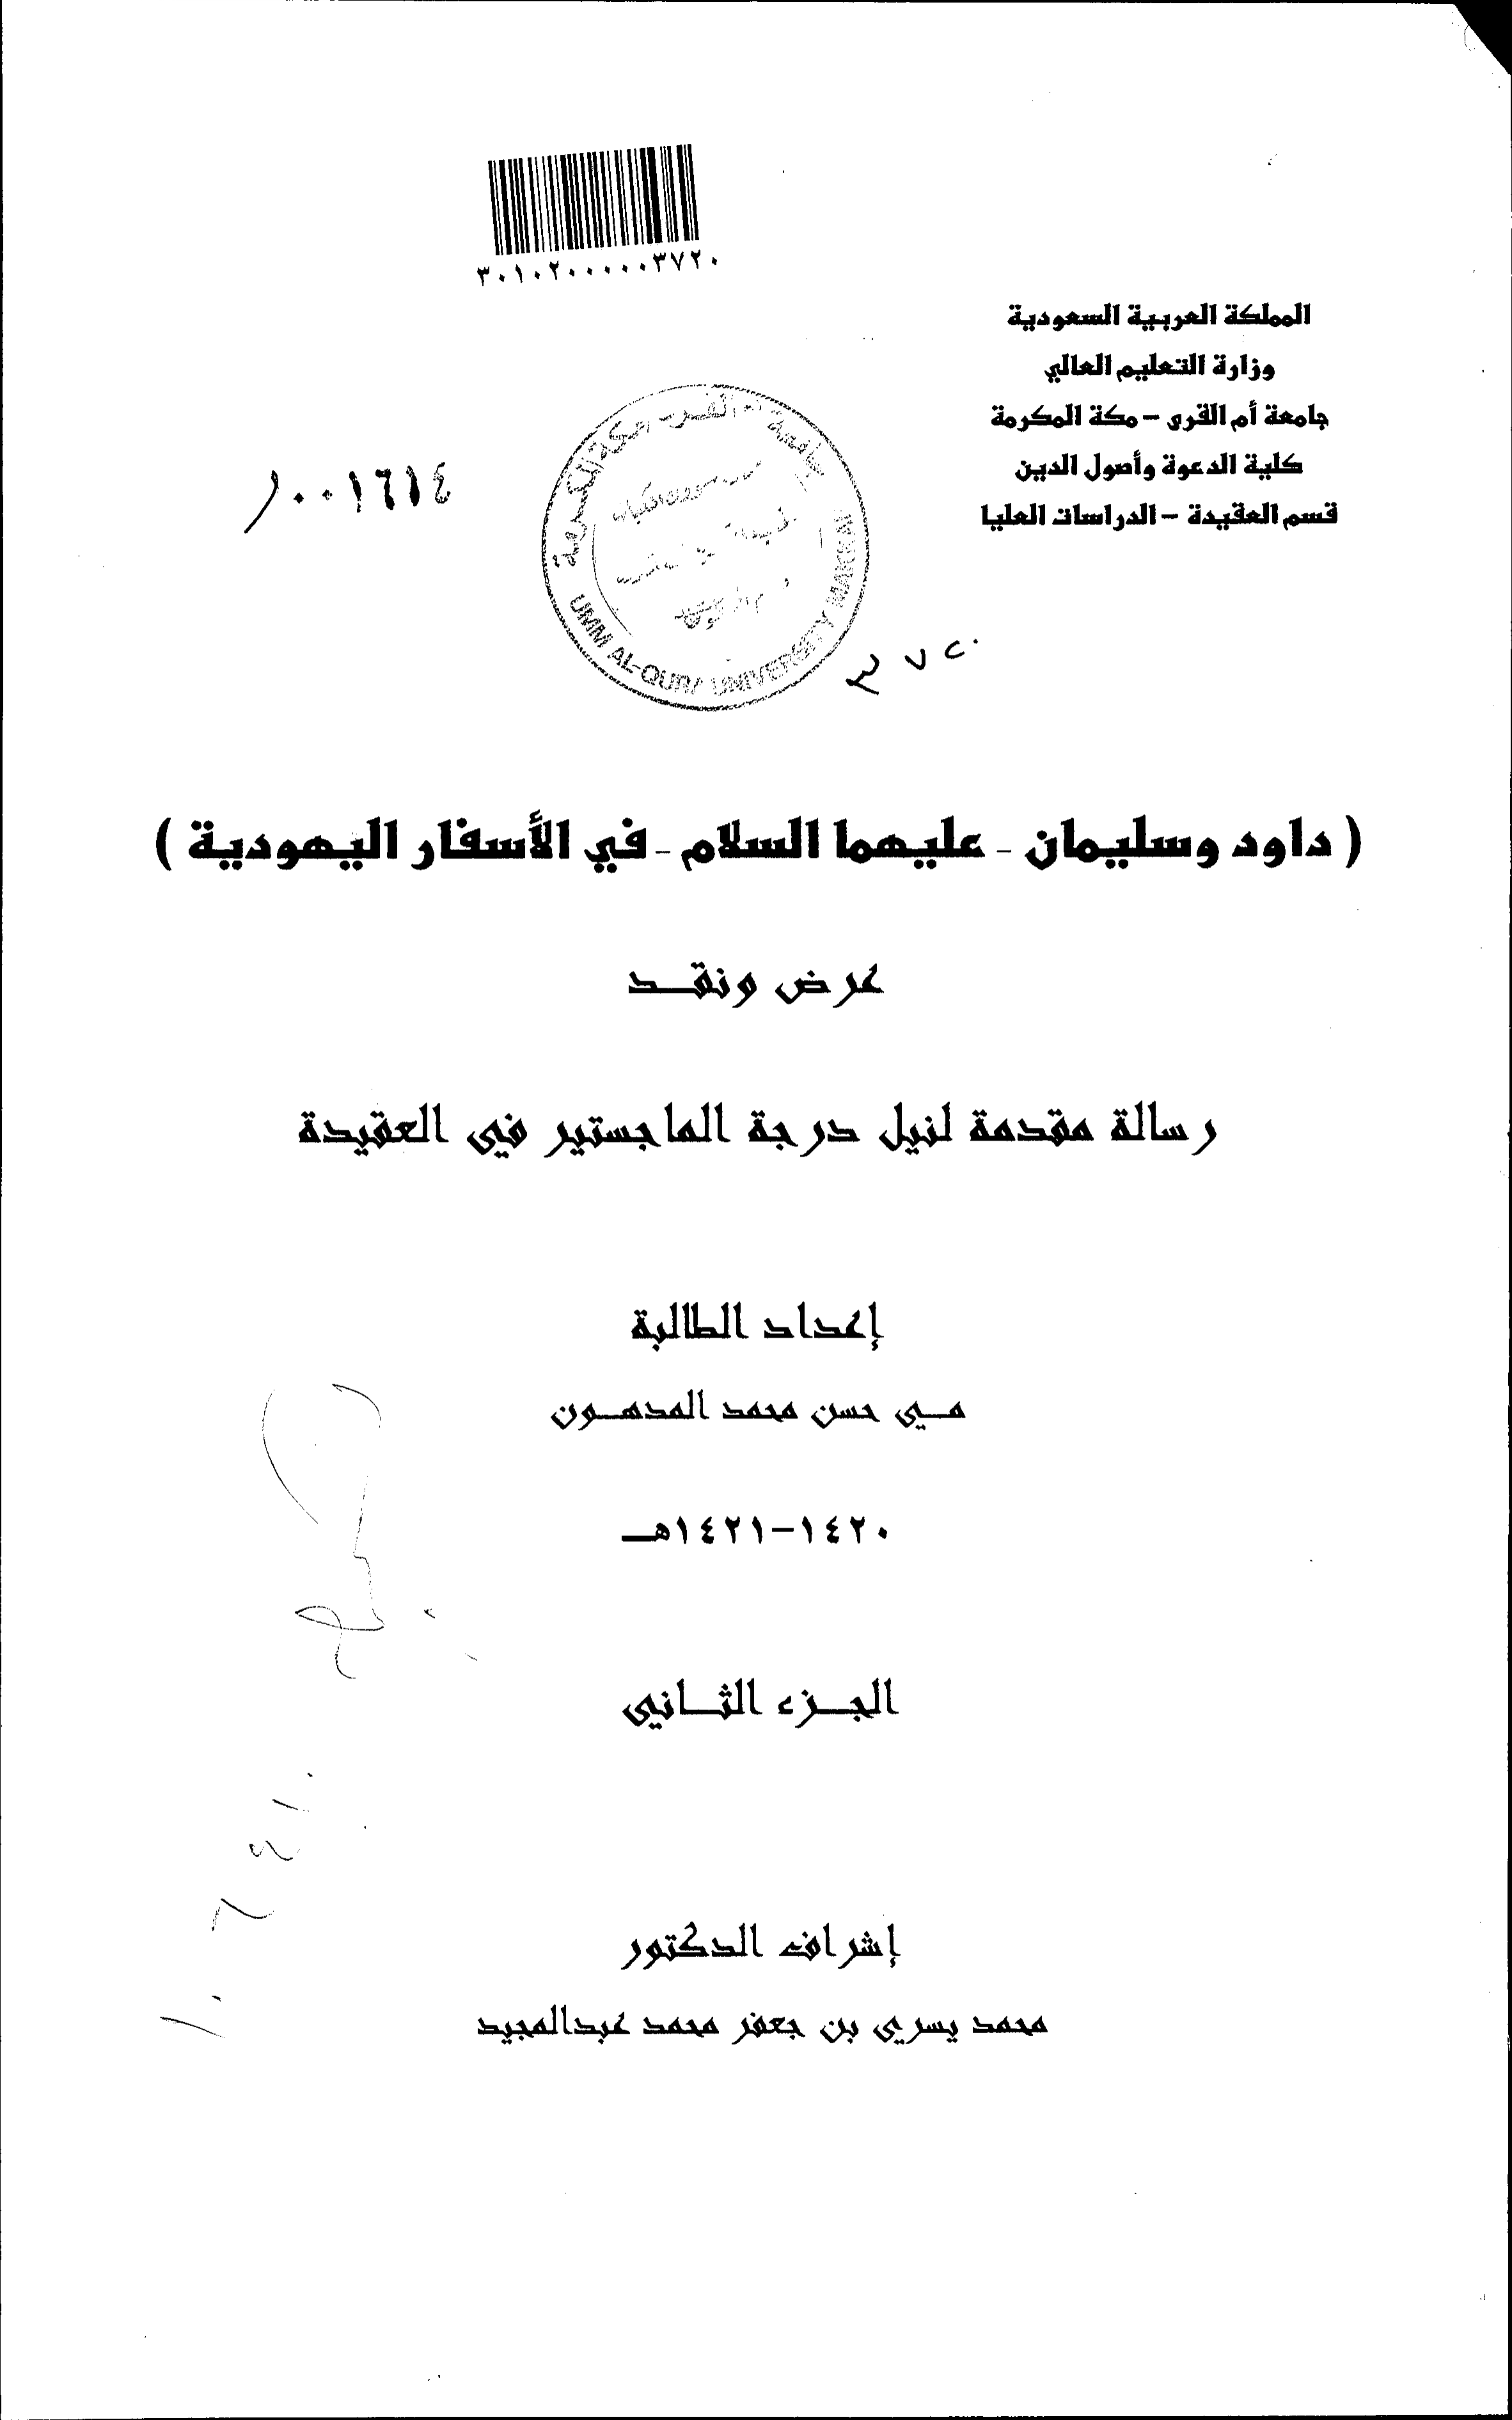 ٣٠١٠٢٠٠٠٠٠٣٧٢٠
المملكة العربية السعودية
وزارة التعليم العالي
جامعة أم القرى – مكة المكرمة
كلية الدعوة وأصول الدين
قسم العقيدة – الدراسات العليا
٠٠١٦١٤
جامعة أم القرى مكة المكرمة
UMM AL-QURA UNIVERSITY MAKKAH
٣٧٢٠
( داود وسليمان - عليهما السلام - في الأسفار اليهودية )
عرض ونقــد
رسالة مقدمة لنيل درجة الماجستير في العقيدة
إعداد الطالبة
مــي حسن محمد المدهــون
١٤٢٠–١٤٢١هــ
الجــزء الثــاني
إشراف الدكتور
محمد يسري بن جعفر محمد عبدالمجيد